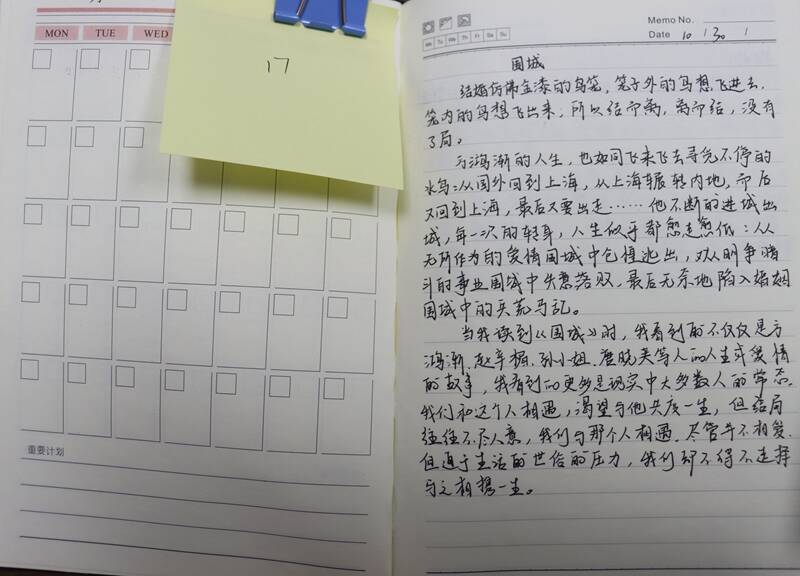 月
MON TUE WED
17
重要计划
Memo No.
Mo Tu We Th Fr Sa Su
Date 10 / 30 /
围城
结婚仿佛金漆的鸟笼，笼子外的鸟想飞进去，
笼内的鸟想飞出来，所以结而离，离而结，没有
了局。
方鸿渐的人生，也如同飞来飞去寻觅不停的
水鸟：从国外回到上海，从上海辗转内地，而后
又回到上海，最后又要出走……他不断的进城出
城，每一次的转身，人生似乎都愈走愈低：从从
无所作为的爱情围城中仓惶逃出，或从明争暗
斗的事业围城中失意落败，最后无奈地陷入婚姻
围城中的兵荒马乱。
当我读到《围城》时，我看到的不仅仅是方
鸿渐、赵辛楣、孙小姐、唐晓芙等人的人生或爱情
的故事，我看到的更多是现实中大多数人的常态。
我们和这个人相遇，渴望与他共度一生，但结局
往往不尽人意，我们与那个人相遇，尽管并不相爱，
但迫于生活的世俗的压力，我们却不得不选择
与之相携一生。